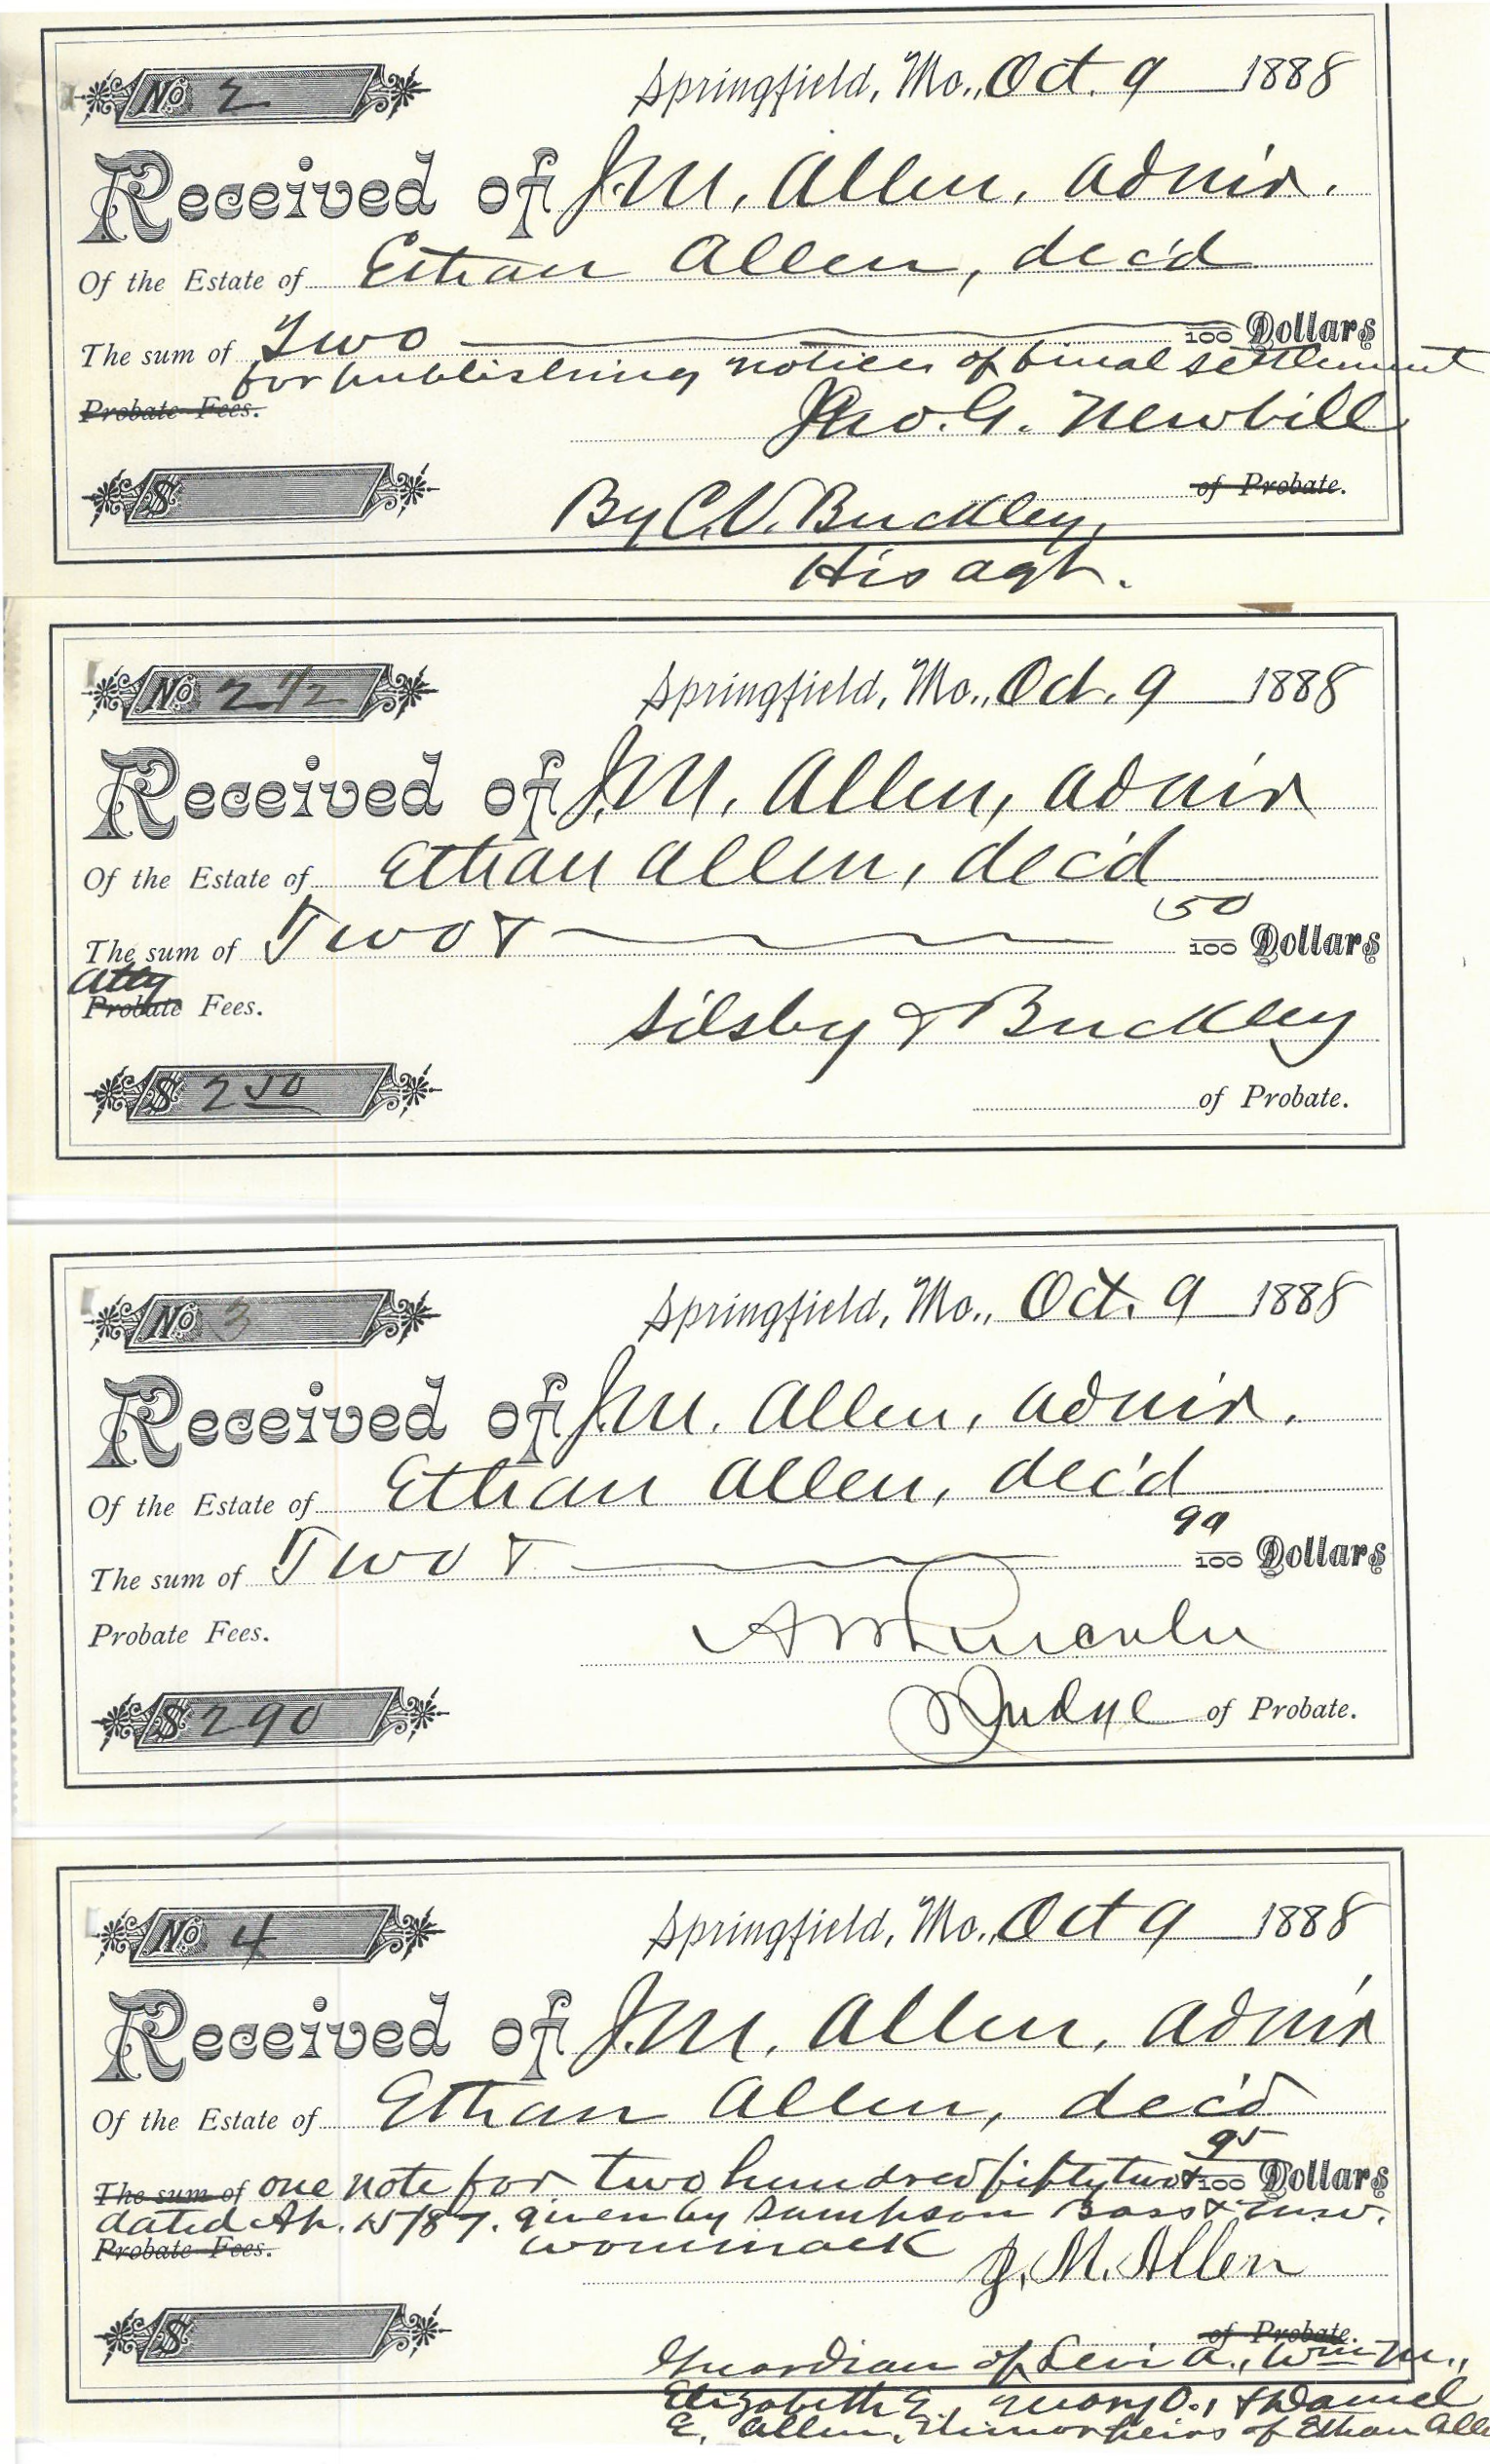 No 2
Springfield, Mo., Oct. 9 1888
Received of J.M. Allen, admr.
Of the Estate of Ethan Allen, dec'd
The sum of Two 100 Dollars
for publishing notices of final settlement
Probate Fees.
Jno. G. Newbill
$
of Probate.
By C.V. Buckley,
His agt.
No 2 1/2
Springfield, Mo., Oct. 9 1888
Received of J.M. Allen, admr
Of the Estate of Ethan Allen, dec'd
The sum of Two & 50/100 Dollars
atty
Probate Fees.
Silsby & Buckley
$ 2 50
of Probate.
No 3
Springfield, Mo., Oct. 9 1888
Received of J.M. Allen, admr.
Of the Estate of Ethan Allen, dec'd
The sum of Two & 90/100 Dollars
Probate Fees.
$ 2 90
Judge of Probate.
No 4
Springfield, Mo., Oct 9 1888
Received of J.M. Allen, admr
Of the Estate of Ethan Allen, dec'd
The sum of one note for two hundred fifty two & 95/100 Dollars
dated Ap. 15/87. given by Sampson Bass &
Probate Fees.
Wommack
J. M. Allen
$
of Probate.
Guardian of Levi A., Wm M.,
Elizabeth E., Mary O., & Daniel
E. Allen, Minor heirs of Ethan Alle